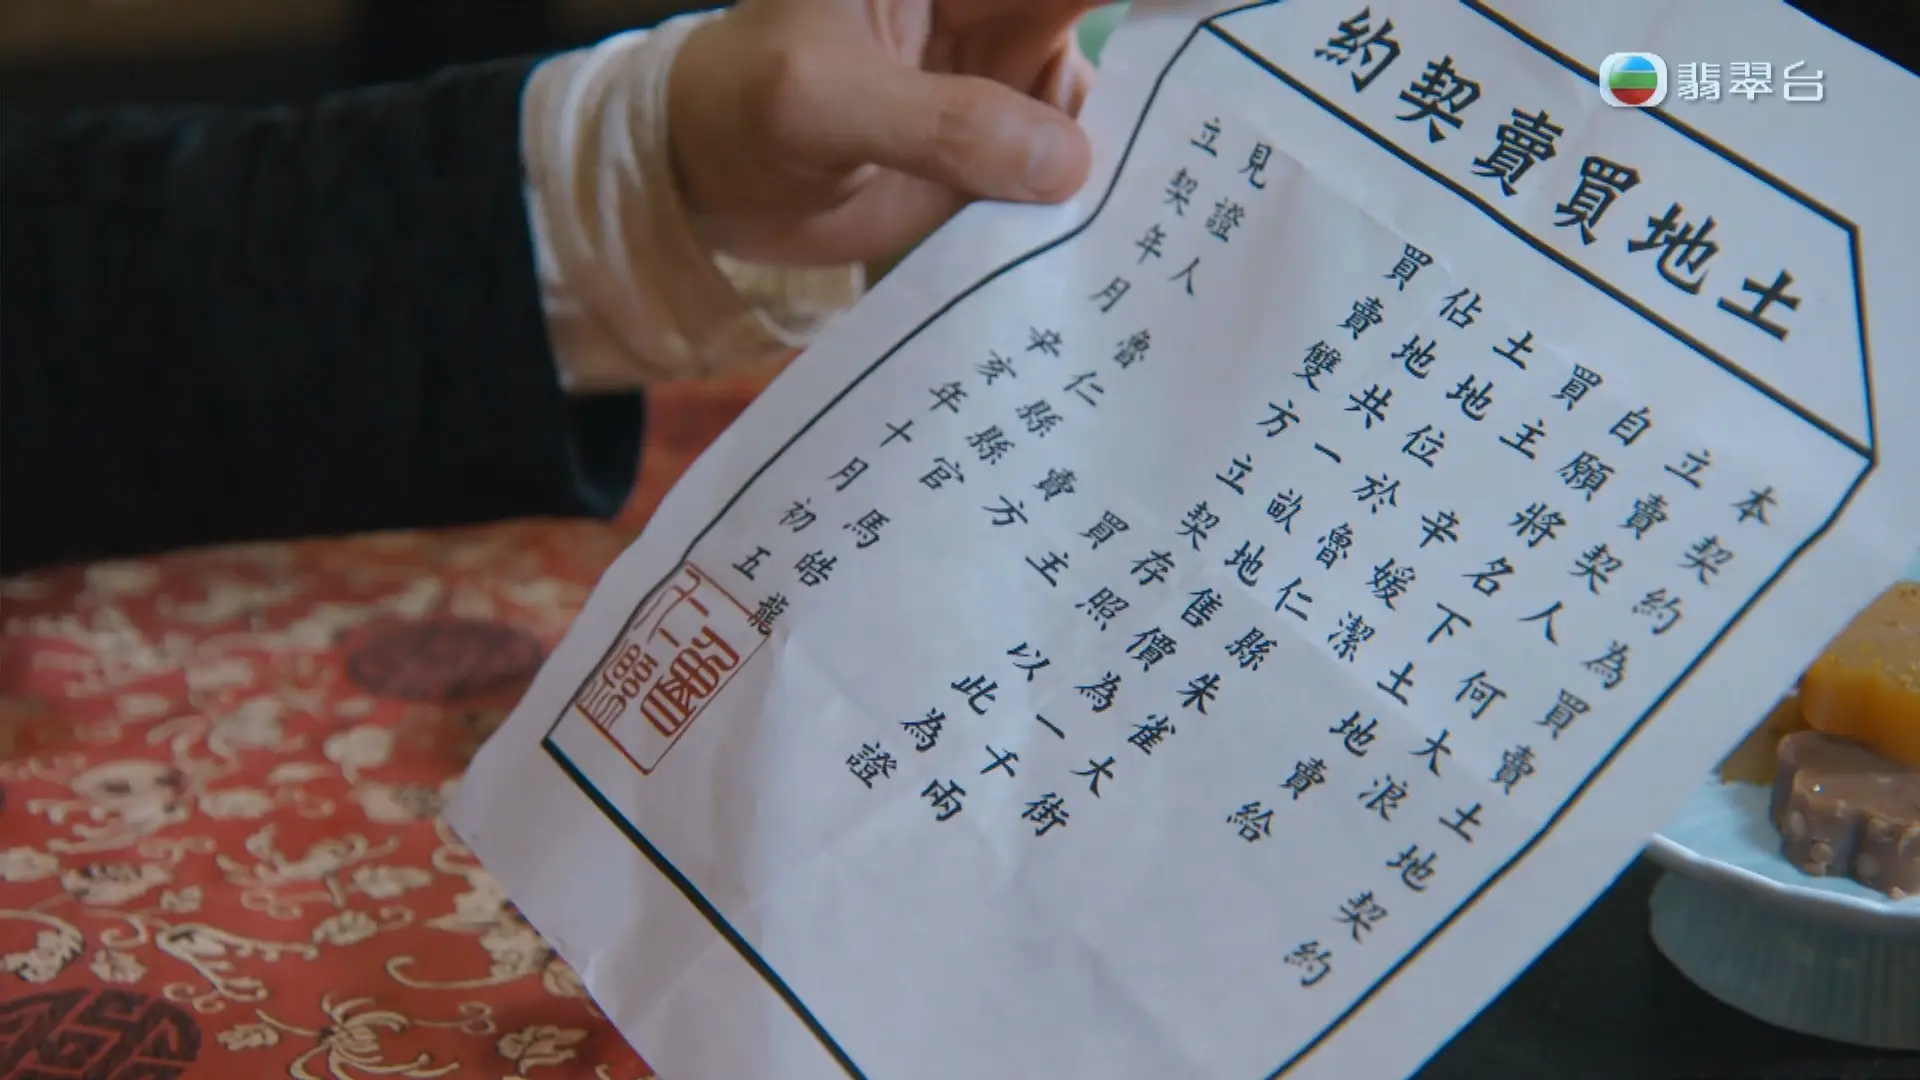 土地買賣契約
本契約為買賣土地契約
立賣契人何大浪
自願將名下土地賣給
買主辛媛潔
土地位於魯仁縣朱雀大街
佔地共一畝地售價為一千兩
買賣雙方立契存照以此為證
買主
賣方
見證人魯仁縣縣官馬皓龍
立契年月辛亥年十月初五
翡翠台